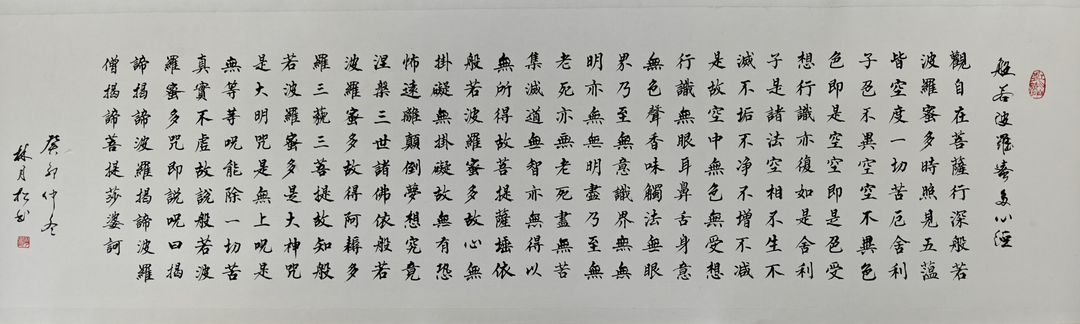 般若波羅蜜多心經
觀自在菩薩行深般若
波羅蜜多時照見五蘊
皆空度一切苦厄舍利
子色不異空空不異色
色即是空空即是色受
想行識亦復如是舍利
子是諸法空相不生不
滅不垢不净不增不減
是故空中無色無受想
行識無眼耳鼻舌身意
無色聲香味觸法無眼
界乃至無意識界無無
明亦無無明盡乃至無
老死亦無老死盡無苦
集滅道無智亦無得以
無所得故菩提薩埵依
般若波羅蜜多故心無
掛礙無掛礙故無有恐
怖遠離顛倒夢想究竟
涅槃三世諸佛依般若
波羅蜜多故得阿耨多
羅三藐三菩提故知般
若波羅蜜多是大神咒
是大明咒是無上呪是
無等等呪能除一切苦
真實不虛故說般若波
羅蜜多咒即說呪曰揭
諦揭諦波羅揭諦波羅
僧揭諦菩提莎婆訶
癸卯仲冬
林月松書